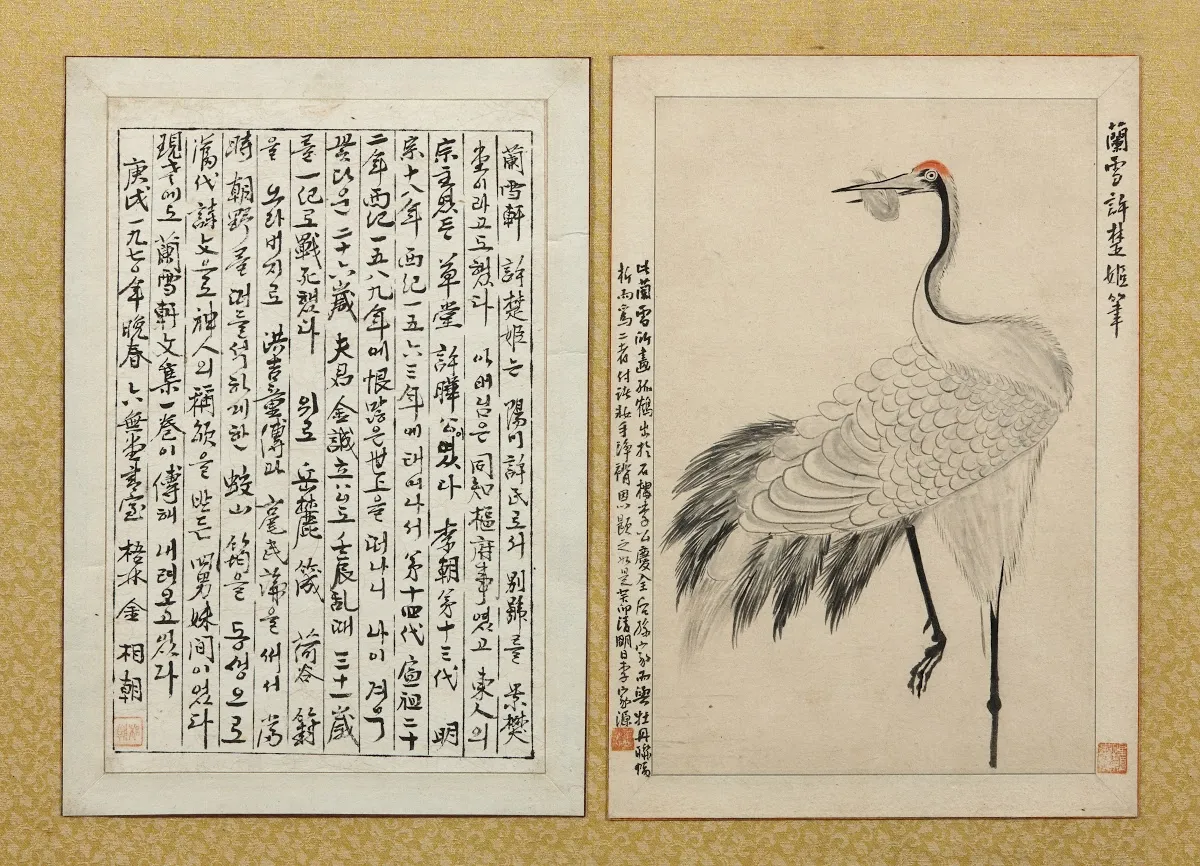 蘭雪許楚姬筆
此蘭雪所畵孤鶴出於石樓李公慶全后孫家而與牡丹聯幅
析而爲二者付諸粧手 因 題之如是癸卯清明日李家源
蘭雪軒 許楚姬는 陽川許氏로서 別號를 景樊
堂이라고도 했다 아버님은 同知樞府事였고 東人의
宗主였든 草堂 許曄公이였다 李朝第十三代 明
宗十八年 西紀一五六三年에 태여나서 第十四代 宣祖二十
二年 西紀一五八九年에 恨많은 世上을 떠나니 나이 겨우
꽃다운 二十六歲 夫君 金誠立公도 壬辰亂때 三十一歲
를 一紀로 戰死했다 위로 岳麓 筬 荷谷 篈
을 오라버지로 洪吉童傳과 豪民論을 써서 當
時 朝野를 떠들석하게한 蛟山 筠을 동생으로
滿代 詩文으로 神人의 稱頌을 받든 四男妹間이였다
蘭雪軒文集一卷이 傳해 내려오고 있다
庚戌一九七〇年晩春 六無堂書室 梧林 金相朝